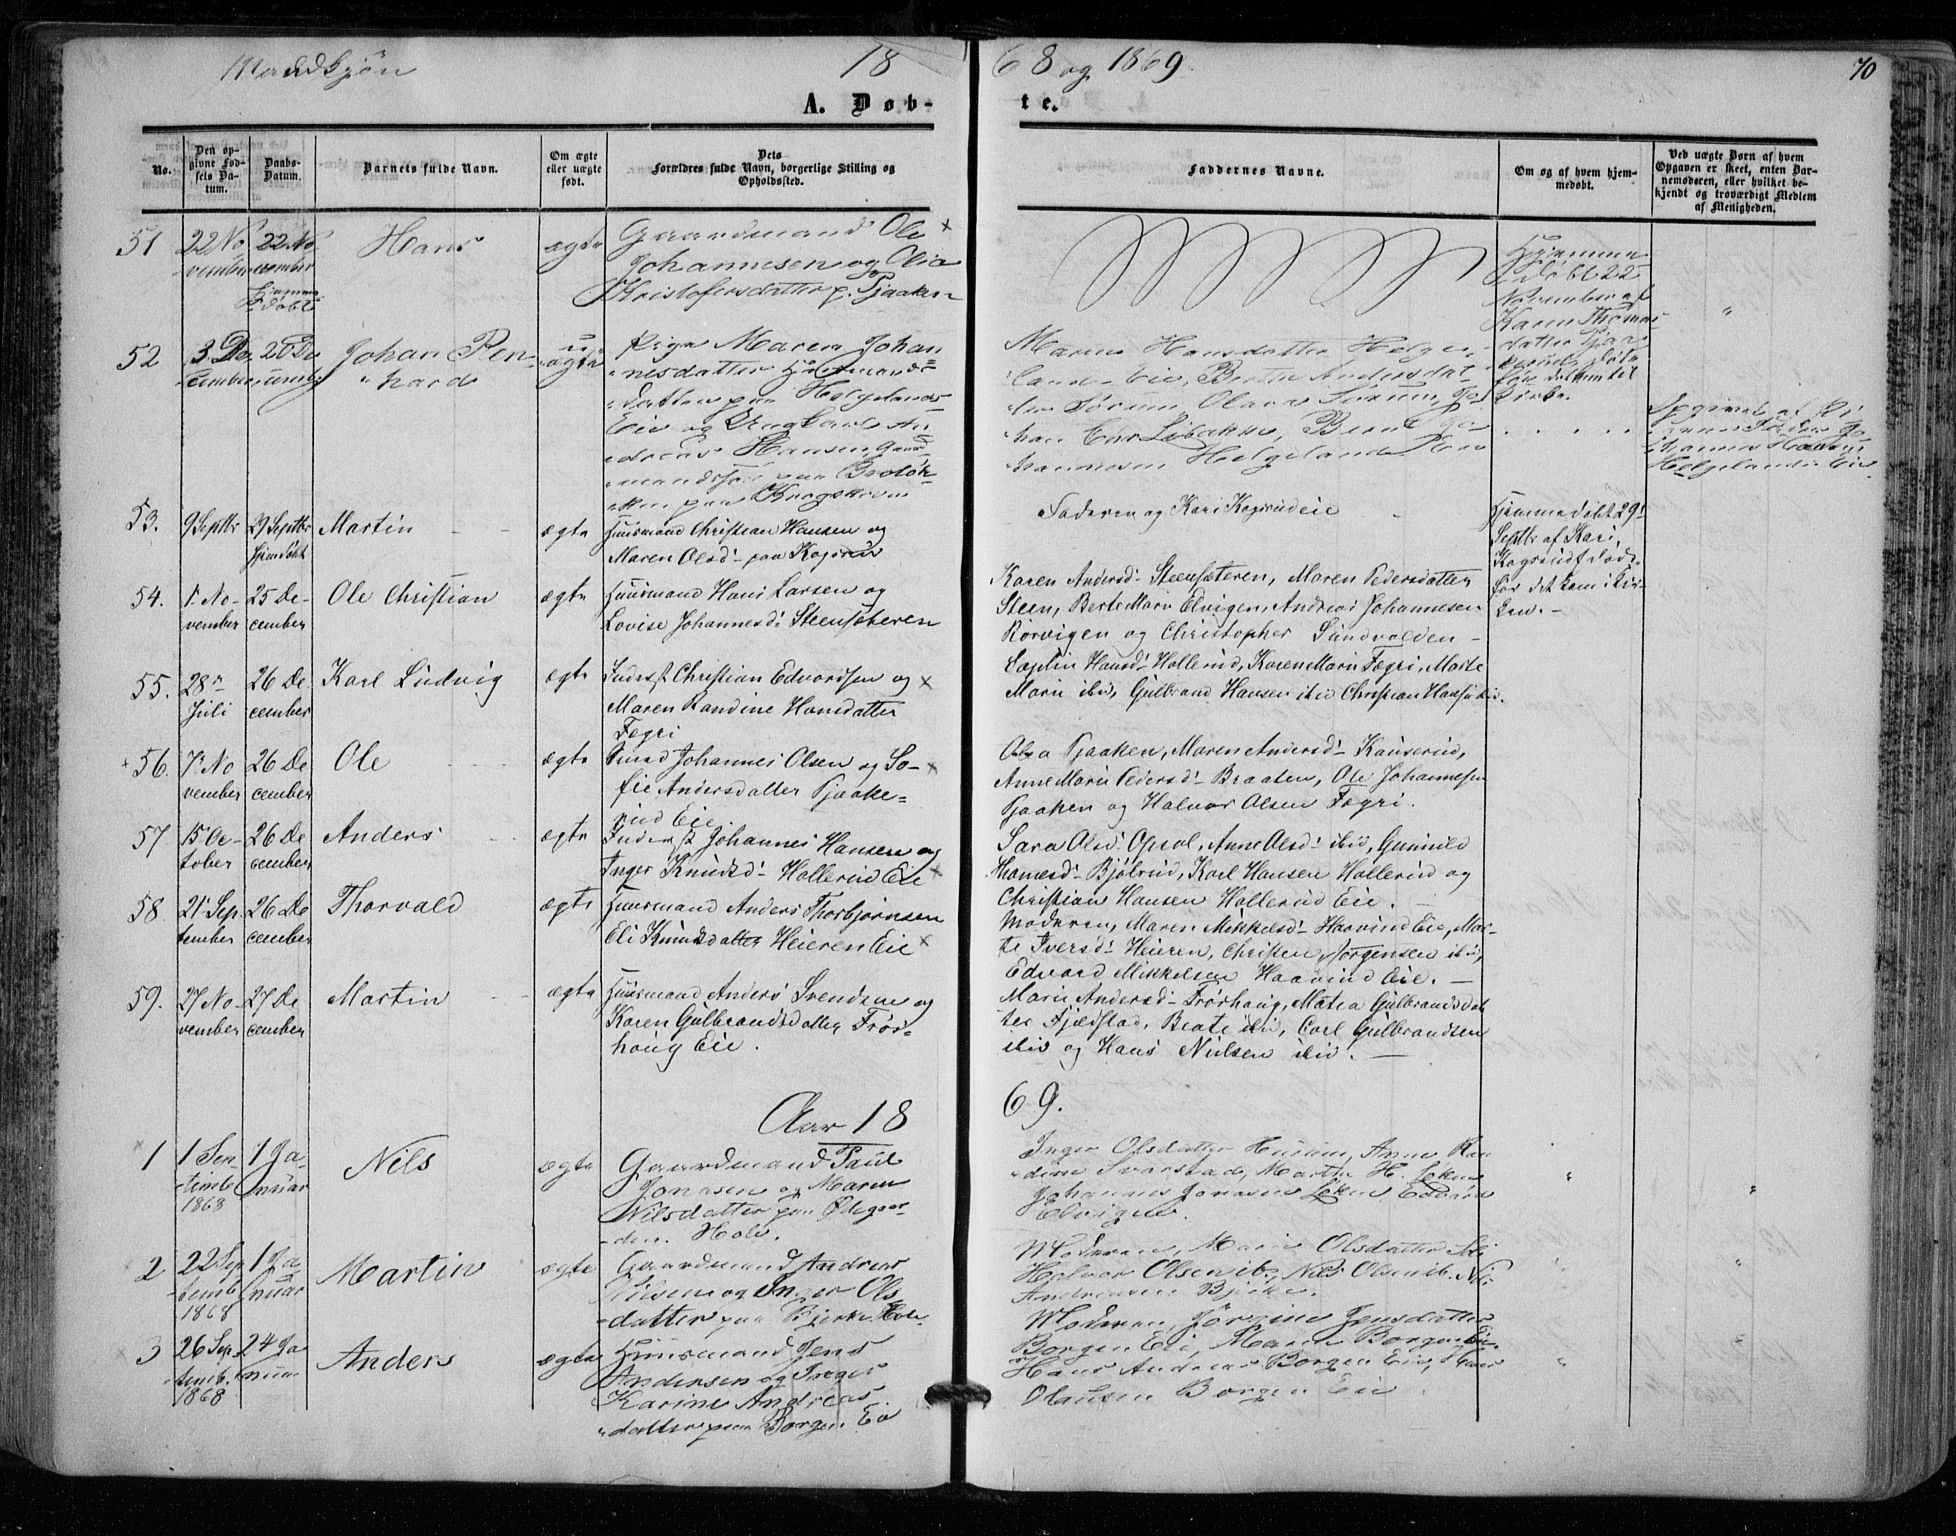 Mandkjøn 18 68 og 1869. 70
A. Døb- te.
No.
Den op-
givne Fød-
sels Da-
tum.
Daabs-
Datum.
Barnets fulde Navn.
Om ægte
eller uægte
født.
Dets
Forældres fulde Navn, borgerlige Stilling og
Opholdssted.
Faddernes Navne.
Om og af hvem hjem-
medøbt.
Ved uægte Børn af hvem
Opgaven er skeet, enten Bar-
nemoderen, eller hvilket be-
kjendt og troværdigt Medlem
af Menigheden.
51
22 No
vember
22 No
vember
Hjemme
døbt
Hans
ægte
Gaardmand Ole
Johannesen og Olia
Kristofersdatter p. Pjaaken
Hjemme
døbt 22
November af
Karen Thomas
datter
før det kom til
Kirke.
52
3 De
cember
20 De
cember
Johan
hard
u
ægte
Pige Maren Johan
nesdatter Huusmands
datter paa Helgelands
Eie og Ungkarl An
dreas Hansen Gaard
mandssøn paa
paa Krogskoven
Maren Hansdatter Helge
land Eie, Berthe Andersdat
ter Sørum, Olava Sørum, Jo
han Eie, Bernt Jo
hannesen Helgelands Eie
Opgivet af Pi
gens Fader Jo
hannes Hansen
Helgelands Eie
53.
9 Septbr
29 Septbr
Hjemdøbt
Martin
ægte
Huusmand Christian Hansen og
Maren Olsd: paa Kogsrud
Faderen og Kari Kogsrudeie
Hjemmedøbt 29:
Septbr af Kari
Kogsrud død
før det kom i Kir-
ken.-
54.
1: No-
vember
25 De-
cember
Ole Christian
ægte
Huusmand Hans Larsen og
Lovise Johannesd: Steensæteren
Karen Andersd: Steensæteren, Maren Pedersdatter
Steen, Berte Marie Elvigen, Andreas Johannesen
Rørvigen og Christopher Sundvolden -
55.
28
Juli
26 De
cember
Karl Ludvig
ægte
Inderst Christian Edvardsen og
Maren Randine Hansdatter
Fægri
Sophie Hansd: Hollerud, Karen Marie Fægri, Marte
Marie ibid, Gulbrand Hansen ibid Christian Hansen ibid.
56.
7: No
vember
26 De
cember
Ole
ægte
Smed Johannes Olsen og So-
fie Andersdatter Pjaake-
rud Eie
Olea Pjaaken, Maren Andersd: Kauserud,
Anne Marie Pedersd: Braaten, Ole Johannesen
Pjaaken og Halvor Olsen Fægri.
57
15 Oc-
tober
26 De
cember
Anders
ægte
Inderst Johannes Hansen og
Inger Knudsd: Hollerud Eie
Sara Olsd: Opsal, Anne Olsd: ibid, Gunnild
Thomesd: Bjølrud, Karl Hansen Hollerud og
Christian Hansen Hollerud Eie. -
58
21 Sep
tember
26 De
cember
Thorvald
ægte
Huusmand Anders Thorbjørnsen
Eli Knudsdatter Heieren Eie
Moderen, Maren Mikkelsd: Haavind Eie, Mar-
te Iversd: Heieren, Christen Jørgensen ibid,
Edvard Mikkelsen Haavind Eie. -
59.
27 No
vember
27 De
cember
Martin
ægte
Huusmand Anders Svendsen og
Karen Gulbrandsdatter Frøs-
houg Eie.
Marie Andersd: Frøshaug, Matea Gulbrandsdat
ter Fjældstad, Beate ibid, Carl Gulbrandsen
ibid og Hans Nielsen ibid. -
Aar 18 69.
1
1 Sep-
tember
1868
1 Ja-
nuar
Nils
ægte
Gaardmand Paul
Jonasen og Maren
Nilsdatter paa Ødegaar-
den. Hole.
Inger Olsdatter Hurum, Anne Ran
dine Svarstad, Marthe H. Løken
Johannes Jonasen Løken Edvard
Elvigen.
2
22 Sep
temb
1868
1 Ja
nuar
Martin
ægte
Gaardmand Andreas
Nilsen og Inger Ols
datter paa Bjerke Hole
Moderen, Marie Olsdatter
Halvor Olsen ib., Nils Olsen ib.
Andreasen Bjerke.
3
26 Sep
temb.
1868
24 Ja
nuar
Anders
ægte
Huusmand Jens
Andersen og Inger
Karine Andreas
datter paa Borgen Eie
Moderen, Jørgine Jensdatter
Borgen Eie, Maren Borgen Eie
Hans Andreas Borgen Eie,
Olausen Borgen Eie.